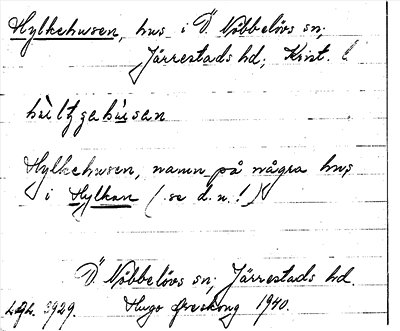 Hylkehusen, hus i Ö. Nöbbelövs sn;
Järrestads hd; Krist. l.
hỳltgahùsan
Hylkehusen, namn på några hus
i Hylkan (se d.n.!)
Ö. Nöbbelövs sn; Järrestads hd.
Hugo Areskoug 1940.
LAL. 3929.